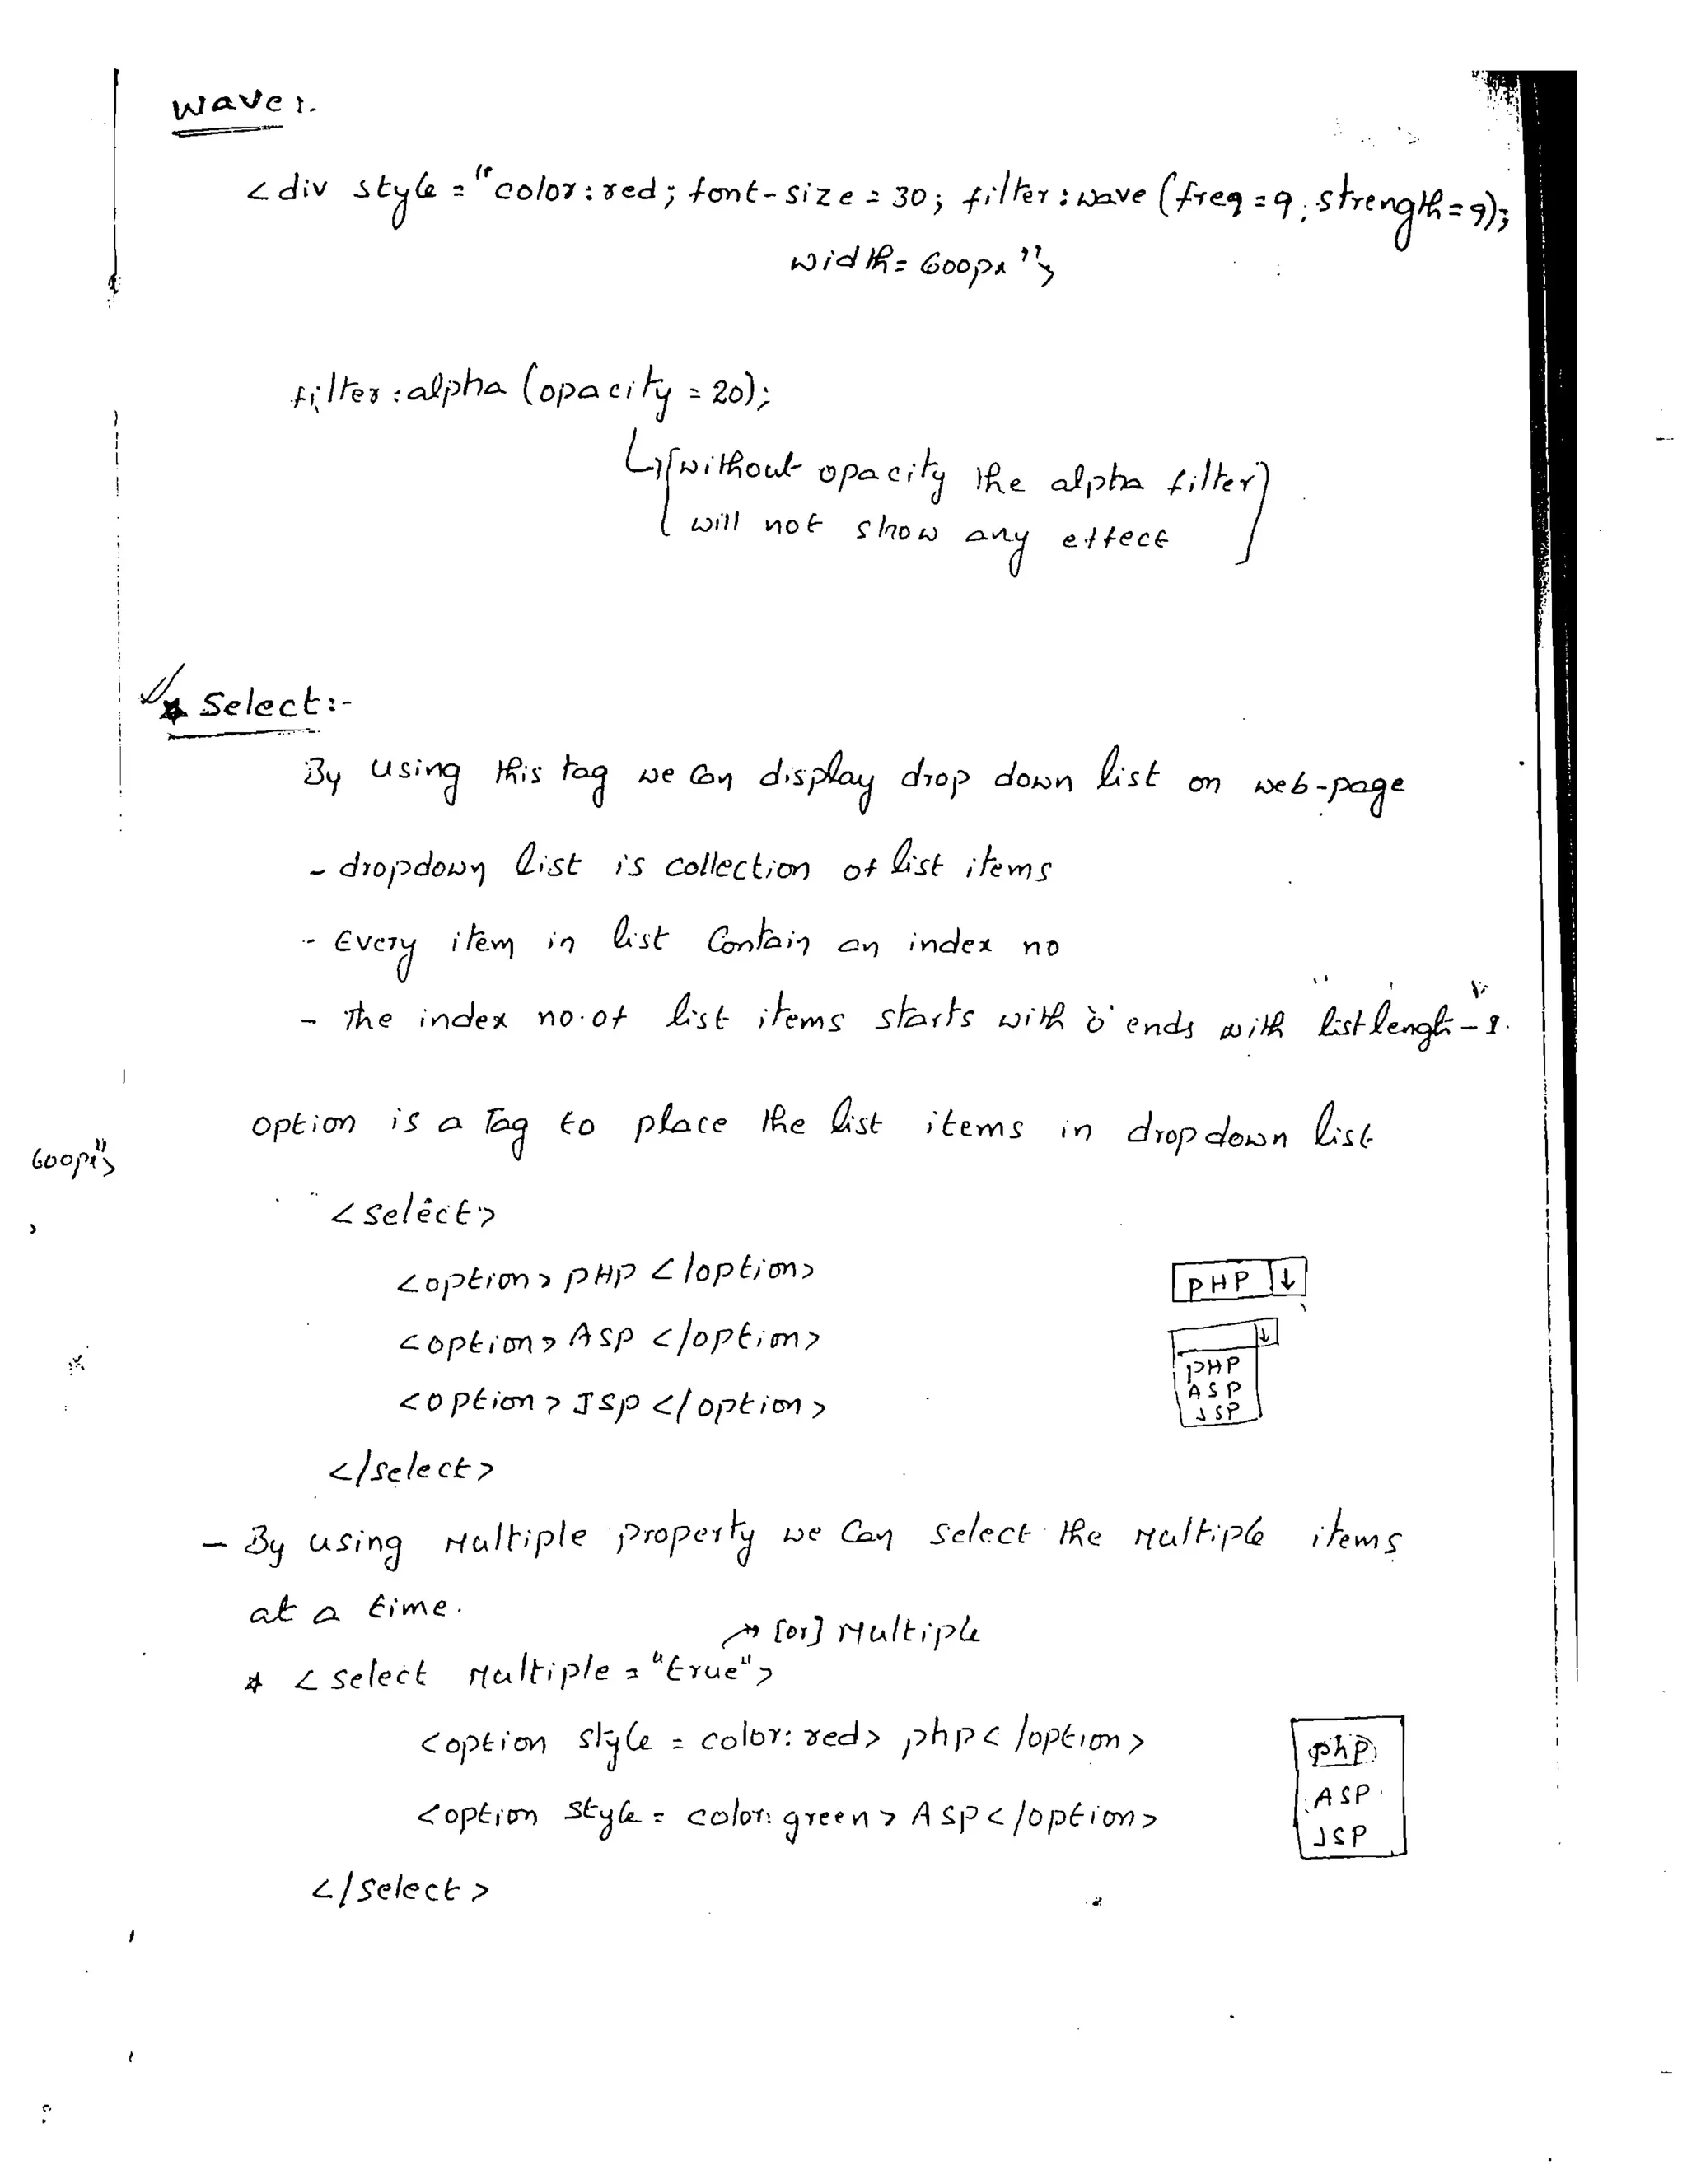 Wave:-
<div style="color:red; font-size=30; filter:wave(freq=9,strength=9);
width=600px">
filter:alpha(opacity=20);
↳[without opacity the alpha filter
will not show any effect]
* Select:-
By using this tag we can display drop down list on web-page
- dropdown list is collection of list items
- Every item in list Contain an index no
- The index no.of list items starts with '0' ends with "list length-1".
option is a Tag to place the list items in dropdown list
600px">
<select>
<option> PHP </option>
PHP ↓
<option> ASP </option>
↓
PHP
ASP
JSP
<option> JSP </option>
</select>
- By using Multiple property we Can select the Multiple items
at a time.
→ [or] Multiple
* <select Multiple="true">
<option style=color:red> php</option>
<option style=color:green> ASP</option>
php
ASP
JSP
</select>